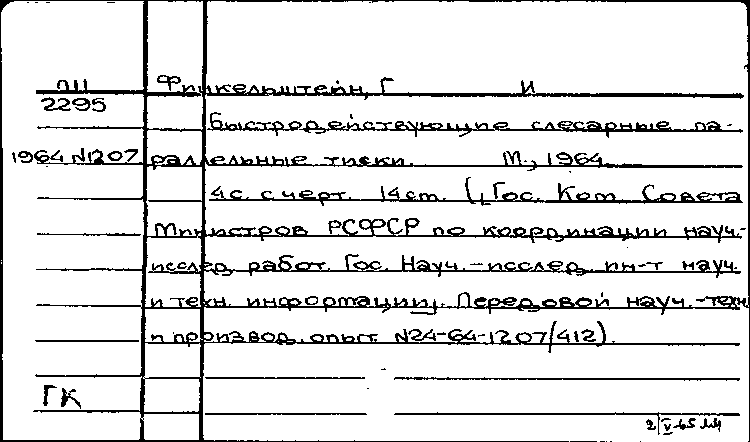 ПИ Финкельштейн, Г И
2295
Быстродействующие слесарные па-
1964 N1207 раллельные тиски. М., 1964.
4с. с черт. 14 cm. (Гос. Ком Совета
Министров РСФСР по координации науч.-
исслед. работ. Гос. Науч.-исслед. ин-т науч.
и техн. информации]. Передовой науч.-техн.
и производ. опыт. N24-64-1207/412).
ГК
2/V-65